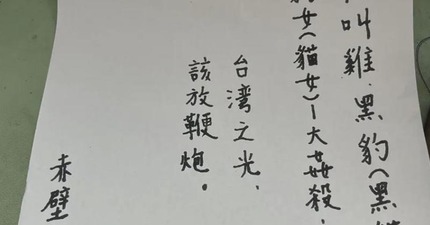 叫雞.黑豹(黑
女(貓女)—大姦殺,
台湾之光,
該放鞭炮。
赤壁